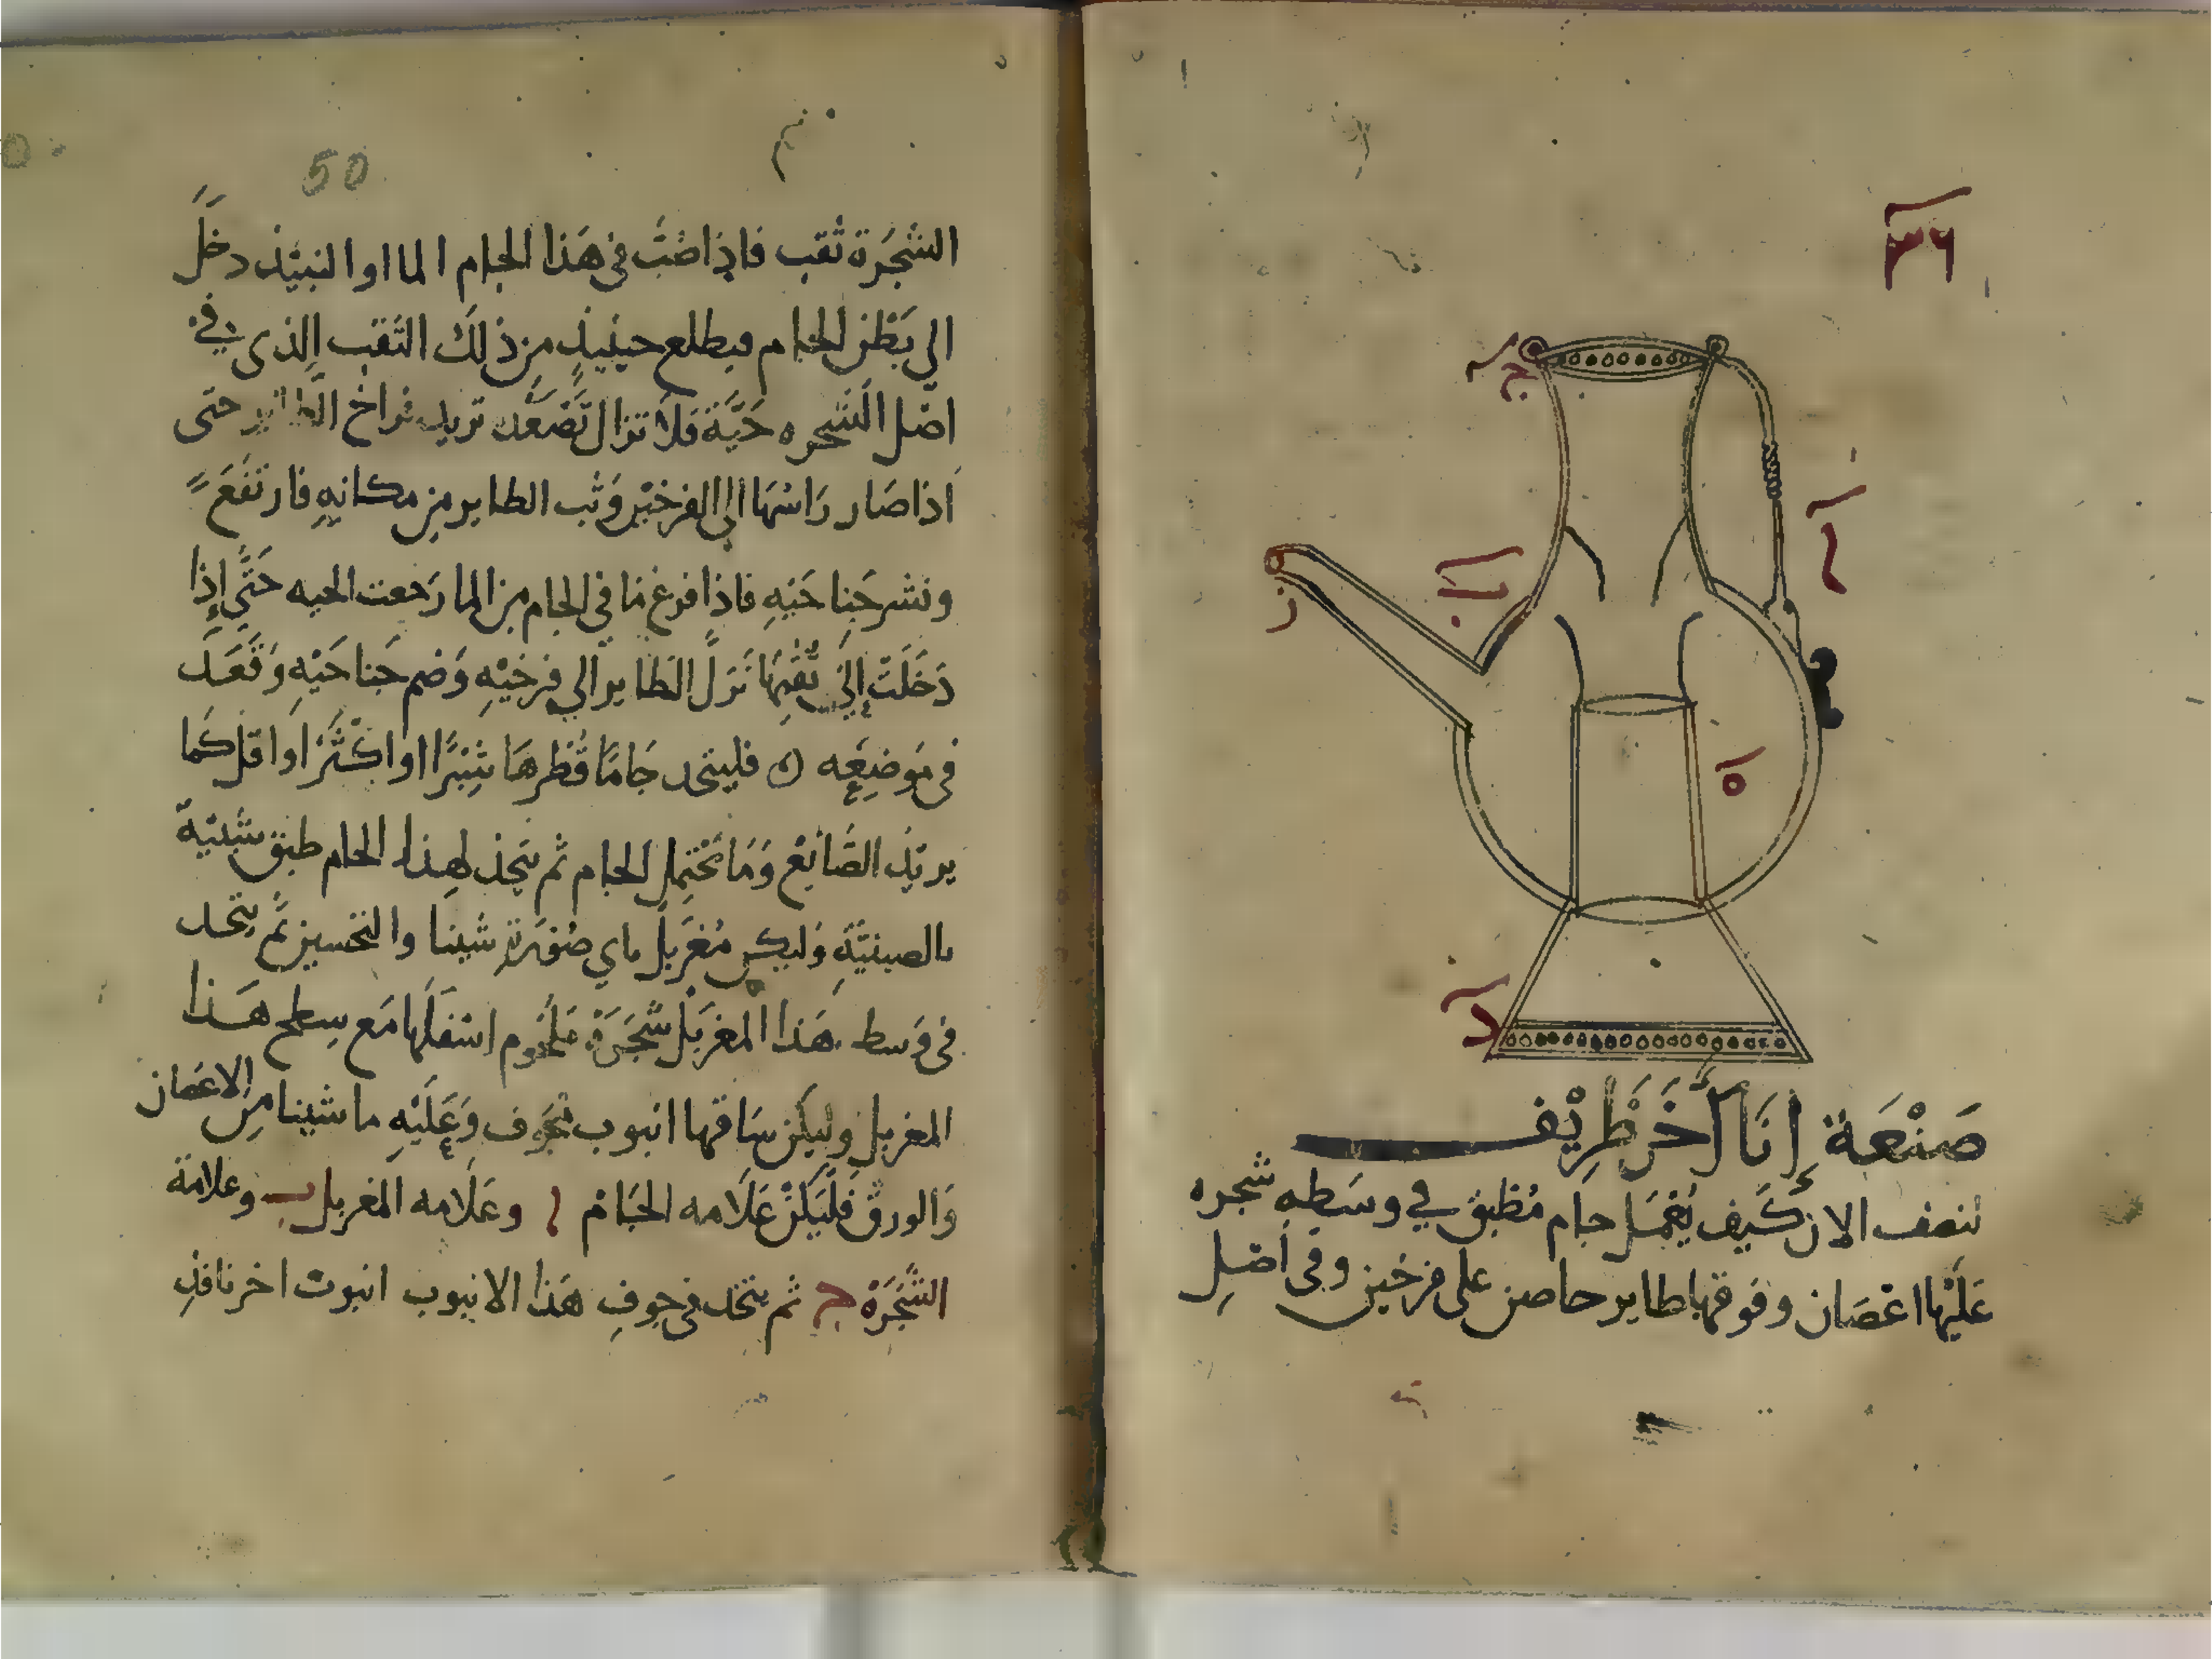 ٣٦
ج
ا
ب
ز
ه
د
صَنْعَة إِنَا أَخَر ظَرِيْف
لنصف الان كَيف يُعْمَل جام مُطبق في وسَطِهِ شجره
عَلَيْها اعْصَان وفوقها طاير حاصن على فرخين وفى اصْلِ
50
الشجَرَة ثقب فاذا صُبَّ في هَذا الجام الما او النبيْذ دخَلَ
الي بَطْن الجام فيطلع حينيذٍ مِن ذلِكَ الثقب الذى في
اصْل الشجره حَيَّة فلا تزال تَصْعَد تريد فراخ الطاير حتى
اذا صَار رَاسُهَا الى الفرخيْن وَثب الطاير مِن مكانِهِ فارتفَعَ
ونشر جَناحَيْهِ فاذا فرغ مَا في الجام من الما رَجعت الحيه حَتَّى إذا
دَخَلَتْ إِلَى ثُقْبِهَا نَزَلَ الطاير الي فرخيْهِ وَضم جَناحَيْهِ وَقَعَدَ
فى مَوضِعِه ه فليتخد جَامًا قُطرهَا شِبْرًا او اكْثَرَ او اقل كَما
يريْد الصَّانِع وَمَا يَحْتمِل الجام ثم يتخِذ لِهذا الجام طبق شبيْهَة
بالصينيَّةِ وَليكن مُغَربَل باي صُوْرَةٍ شينا والتحسين ثم يتخد
فى وَسط هَذا المغرَبَل شَجَرَة مَلحُوم اسْفَلها مَع سطح هَذا
المغربل وليكن سَاقها انبوب مجَوف وَعَلَيْهِ ما شينا مِن الاغصَان
وَالورق فَلْيَكُنْ عَلَامه الجَامْ ا وعَلَامه المغربل ب وعلامَة
الشَّجَرَة ج ثم يتخد فى جوف هَذا الانبوب انبوب اخر نافذ